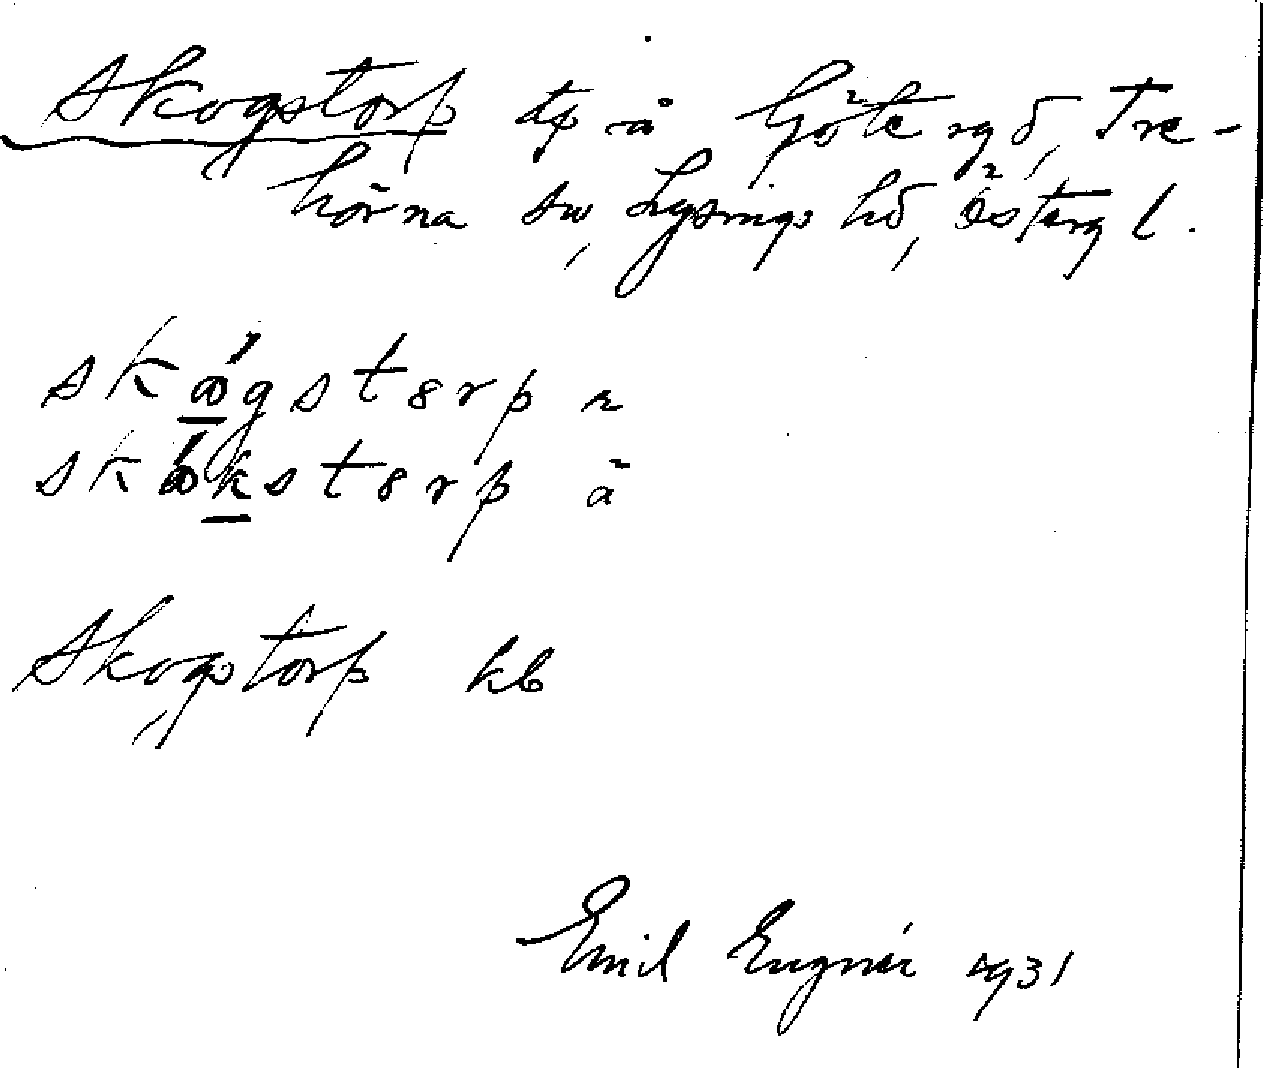 Skogstorp tp å Götergd, Tre-
hörna sn, Lysings hd, Östergl.
skógstorp
skókstorp ā
Skogstorp kb
Emil Eugnér 1931